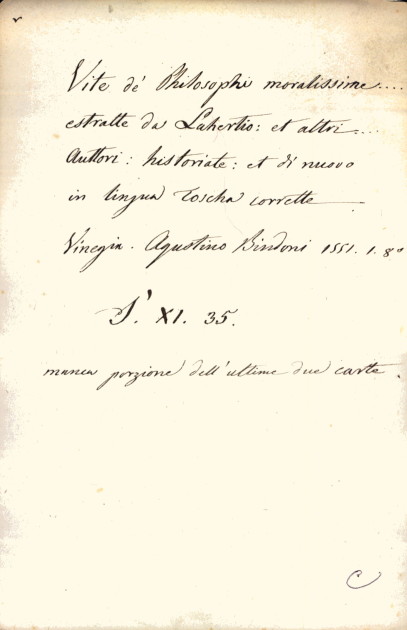 Vite de' Philosophi moralissime....
estratte da Lahertio: et altri....
Auttori: historiate: et di nuovo
in lingua toscha corrette
Vinegia. Agustino Bindoni 1551. 1. 8º
S.' XI. 35.
manca porzione dell'ultime due carte.
C